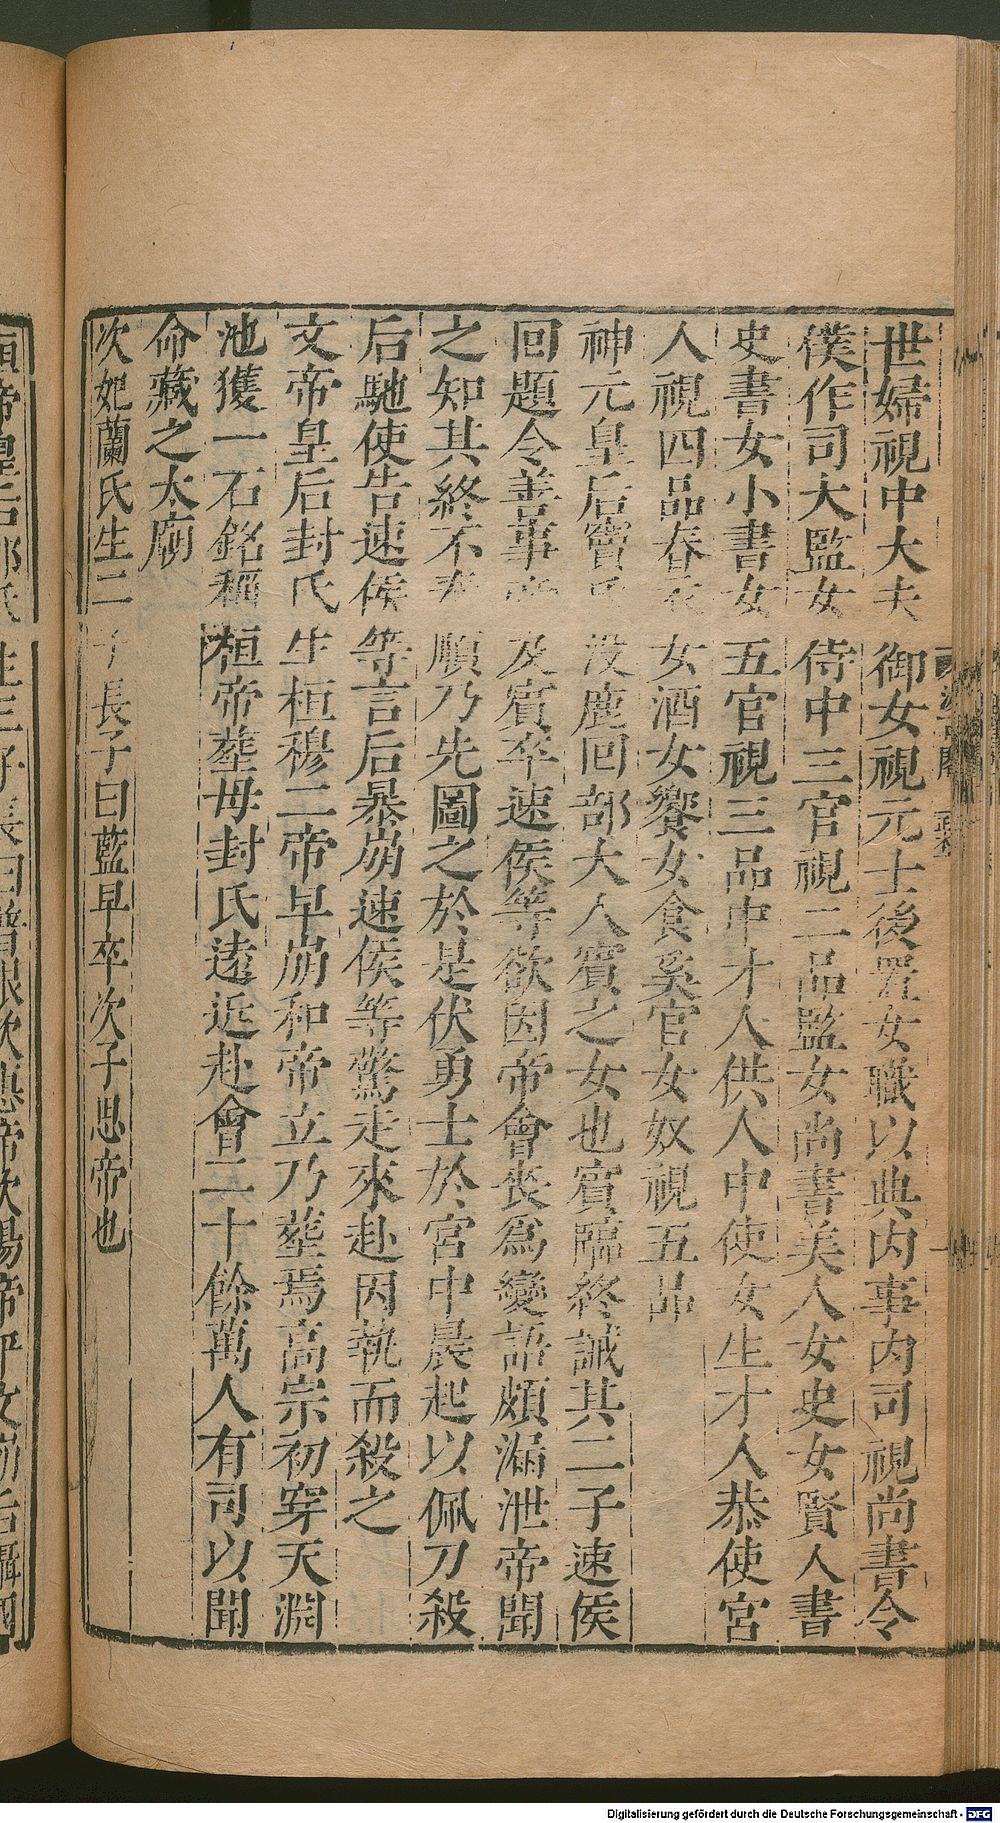 世婦視中大夫御女視元士後置女職以典内事内司視尚書令
僕作司大監女侍中三官視二品監女尚書美人女史女賢人書
史書女小書女五官視三品中才人供人中使女生才人恭使宮
人視四品春衣女酒女饗女食奚官女奴視五品
神元皇后竇氏没鹿回部大人賓之女也賓臨終誡其二子速侯
回題令善事帝及賓卒速侯等欲因帝會喪爲變語頗漏泄帝聞
之知其終不奉順乃先圖之於是伏勇士於宮中晨起以佩刀殺
后馳使告速侯等言后暴崩速侯等驚走來赴因執而殺之
文帝皇后封氏生桓穆二帝早崩和帝立乃葬焉高宗初穿天淵
池獲一石銘稱桓帝葬母封氏遠近赴會二十餘萬人有司以聞
命藏之太廟
次妃蘭氏生二子長子曰藍早卒次子思帝也
桓帝皇后祁氏生三子長曰普根次惠帝次煬帝平文崩后攝國
Digitalisierung gefördert durch die Deutsche Forschungsgemeinschaft - DFG